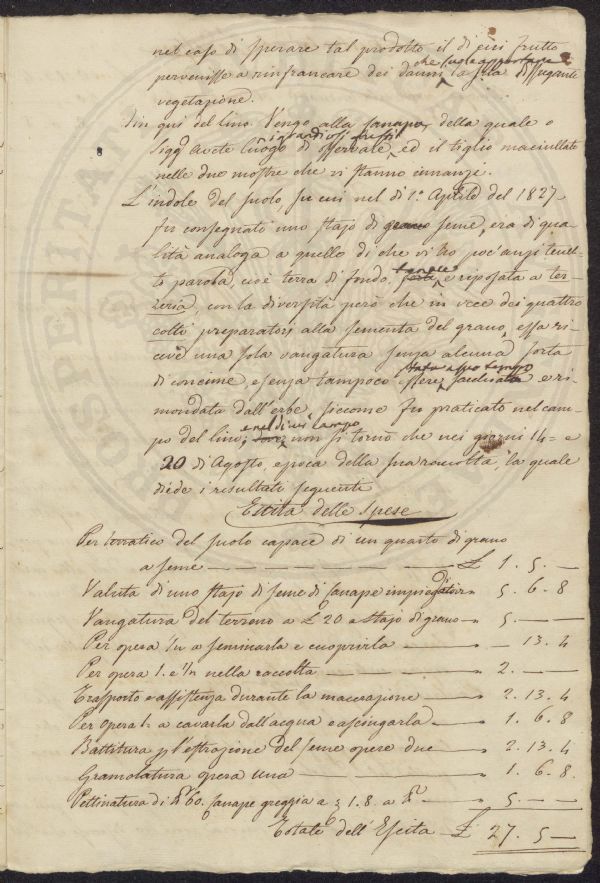 nel caso di sperare tal prodotto il di cui frutto
pervenisse a rinfrancare dei danni che suole apportare la sete di fugante
vegetazione.
Fin qui del lino. Vengo alla canape, della quale o
Sigg. avete luogo di osservare i grandiosi fusti, ed il tiglio maciullato
nelle due mostre che vi stanno innanzi.
L'indole del suolo, su cui nel dì 1.º Aprile del 1827
fu consegnato uno stajo di seme, era di qua-
lità analoga a quello di che vi ho poc'anzi tenu-
to parola, cioè terra di fondo, e riposata a ter-
zeria, con la diversità però che in vece dei quattro
colti preparatori alla sementa del grano, essa ri-
cevè una sola vangatura senza alcuna sorta
di concime, e senza tampoco essere stata a suo tempo sarchiata e ri-
mondata dall'erbe, siccome fu praticato nel cam-
po del lino, e nel di cui campo non si tornò che nei giorni 14 = e
20 di Agosto, epoca della sua raccolta, la quale
diede i risultati seguenti
Escita delle Spese
Per terratico del suolo capace di un quarto di grano
a seme — £ 1. 5. —
Valuta di uno stajo di seme di canape impiegatovi " 5. 6. 8
Vangatura del terreno a £ 20 a stajo di grano — " 5. —
Per opera ½ a seminarla e cuoprirla — " — 13. 4
Per opera 1. e ½ nella raccolta — " 2. —
Trasporto e assistenza durante la macerazione — " 2. 13. 4
Per opera 1. a cavarla dall'acqua e asciugarla — " 1. 6. 8
Battitura p l'estrazione del seme opere due — " 2. 13. 4
Gramolatura opera una — " 1. 6. 8.
Pettinatura di 60. canape greggia a 1. 8. a — " 5. —
Totale dell'Escita — £ 27. 5 —
PROSPERITA